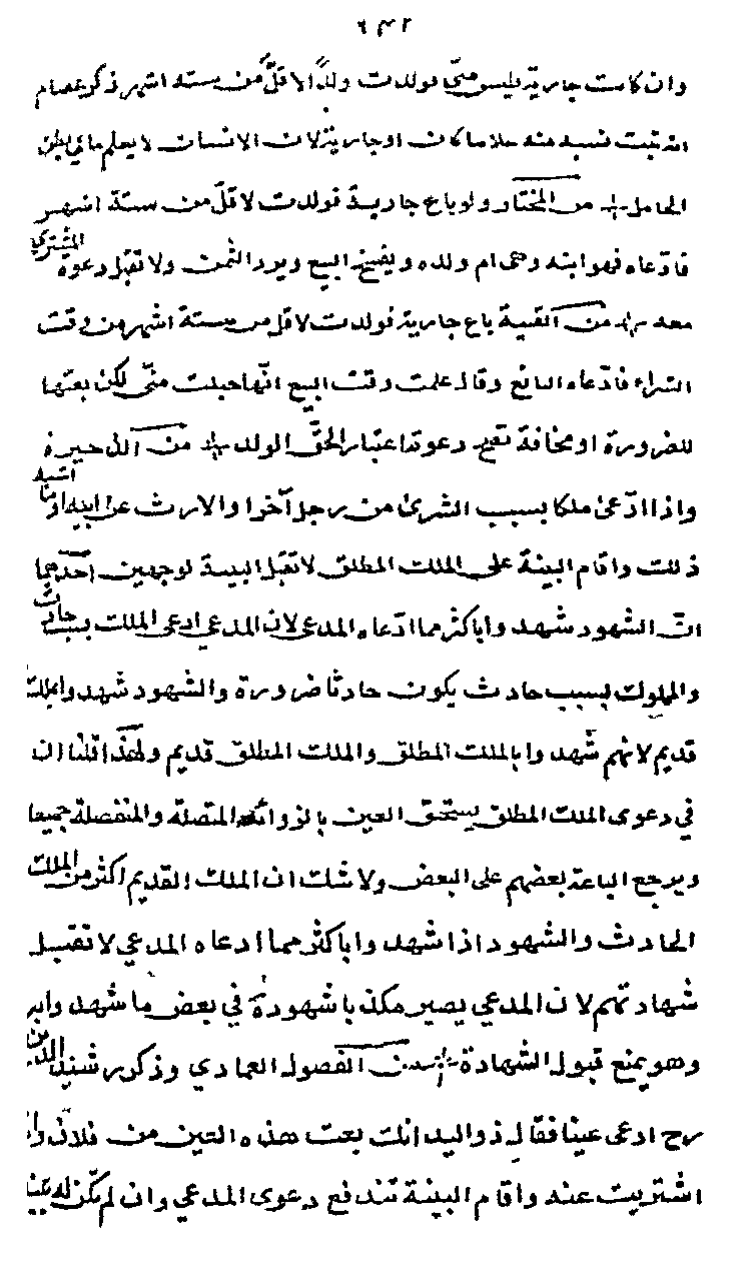 ٦٣٢
وان كانت جارية فليس مني فولدت ولدًا لاقلّ من ستة اشهر ذكر عصام
انه ثبت نسبه منه غلاما كان او جارية لان الانسان لا يعلم ما في بطن
الحامل من المختار ولو باع جارية فولدت لاقلّ من ستة اشهر
فادّعاه فهو ابنه وهى ام ولده ويفسخ البيع ويرد الثمن ولا تقبل دعوة المشتري
معه من القنية باع جارية فولدت لاقل من ستة اشهر من وقت
الشراء فادّعاه البائع وقال علمت وقت البيع انّها حبلت منّي لكن بعتها
للضرورة او مخافة تصح دعوته اعتبار الحقّ الولد من الذخيرة
واذا ادّعى ملكا بسبب الشرى من رجل آخر او الارث عن ابيه او ما اشبه
ذلك واقام البينة على الملك المطلق لا تقبل البينة لوجهين احدهما
انّ الشهود شهدوا باكثر مما ادّعاه المدعى لان المدعي ادعى الملك بسبب حادث
والمملوك بسبب حادث يكون حادثا ضرورة والشهود شهدوا بملك
قديم لانهم شهدوا بالملك المطلق والملك المطلق قديم ولهذا قلنا ان
في دعوى الملك المطلق يستحق العين بالزوائد المتصلة والمنفصلة جميعا
ويرجع الباعة بعضهم على البعض ولا شك ان الملك القديم اكثر من الملك
الحادث والشهود اذا شهدوا باكثر مما ادعاه المدعي لا تقبل
شهادتهم لان المدعي يصير مكذبا شهوده في بعض ما شهدوا به
وهو يمنع قبول الشهادة من الفصول العمادي وذكر رشيد الدين
رح ادعى عينا فقال ذو اليد انك بعت هذه العين من فلان وانا
اشتريت عنه واقام البينة تندفع دعوى المدعي وان لم يكن له بينة